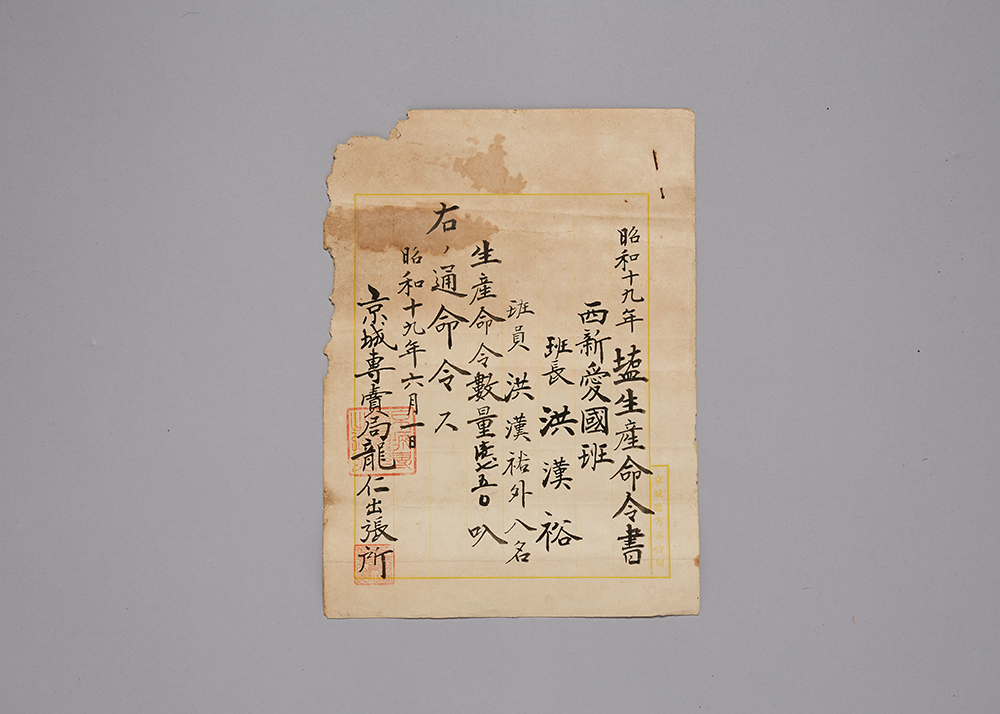 昭和十九年 塩生産命令書
西新愛國班
班長 洪漢裕
班員 洪漢裕外八名
生産命令數量 五〇 叺
右ノ通命令ス
昭和十九年六月一日
京城專賣局龍仁出張所